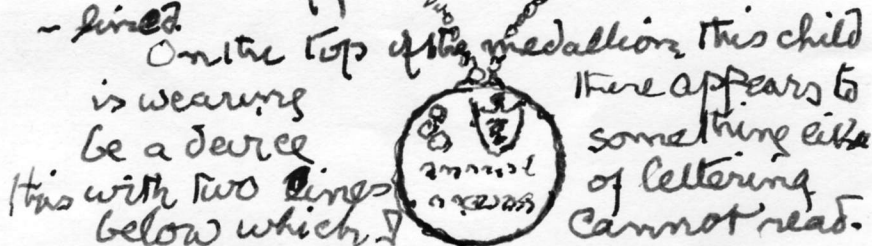 ~ lined.
On the top of the medallion, this child
is wearing there appears to
be a device something like
this with two lines of lettering
below which I cannot read.